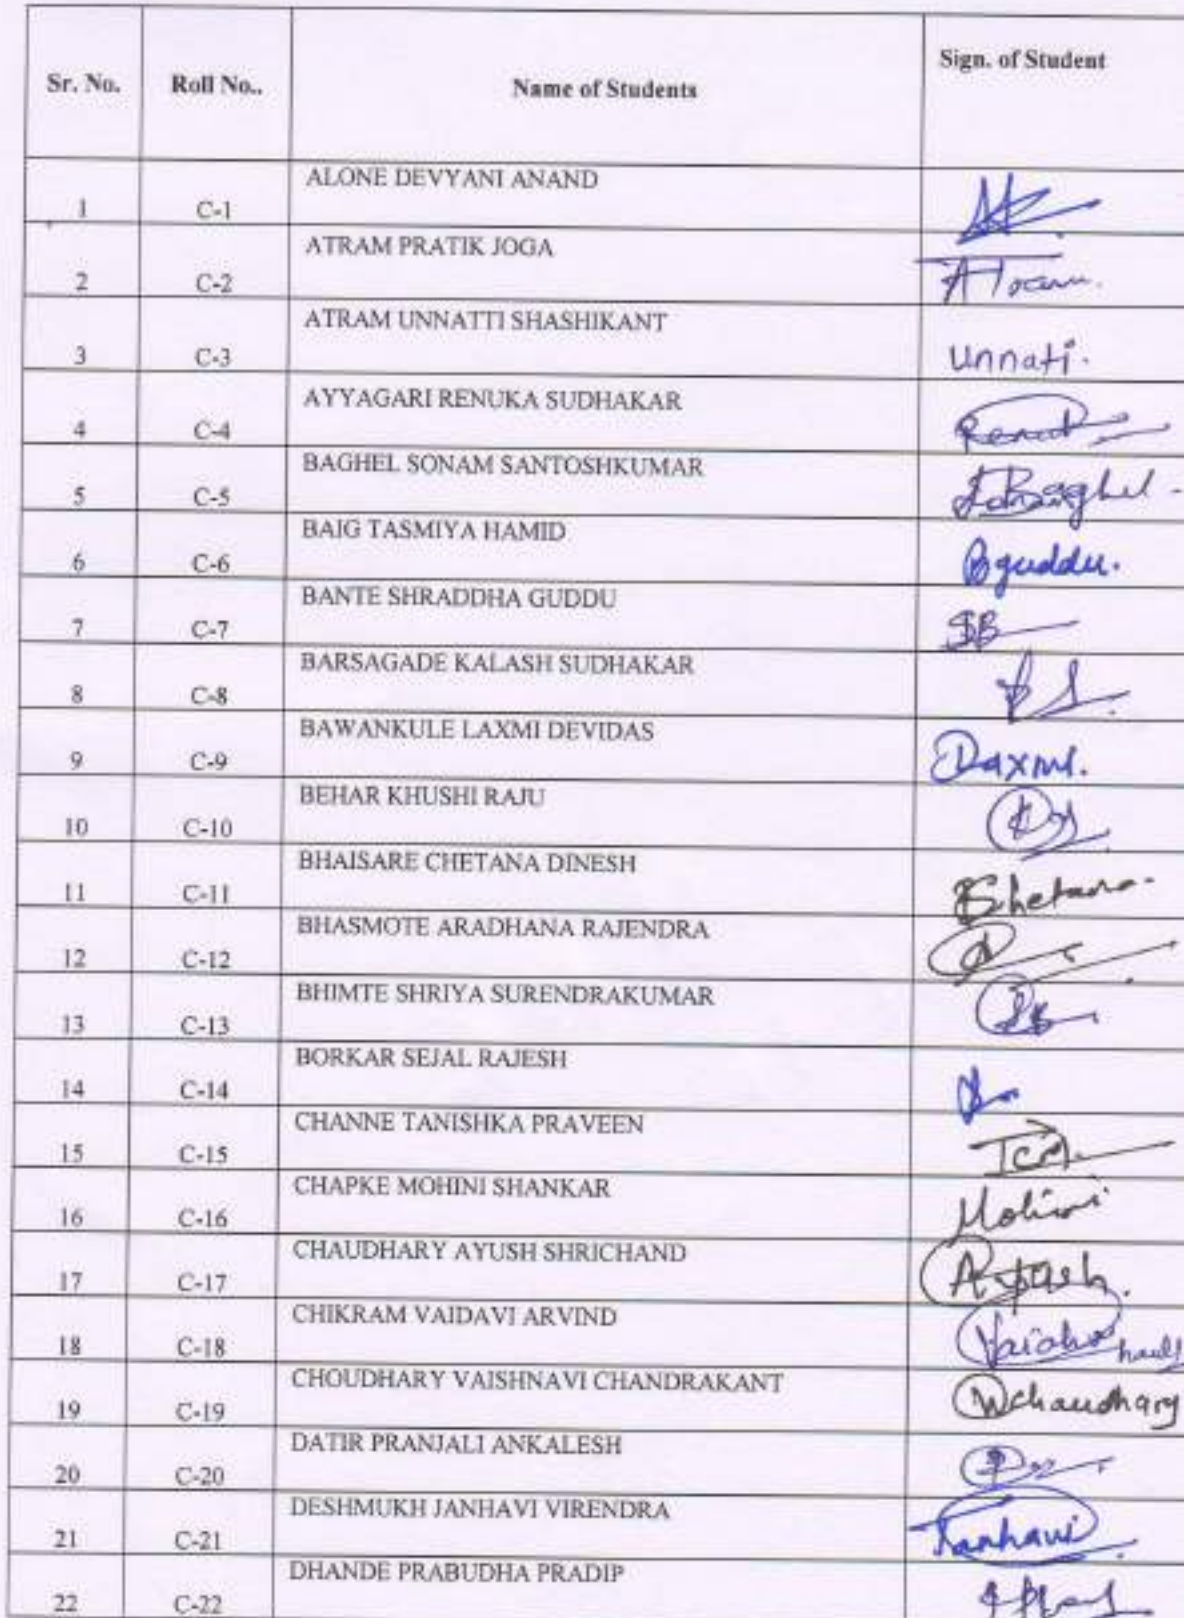 Sr. No. Roll No.. Name of Students Sign. of Student
1 C-1 ALONE DEVYANI ANAND
2 C-2 ATRAM PRATIK JOGA Atram.
3 C-3 ATRAM UNNATTI SHASHIKANT Unnati.
4 C-4 AYYAGARI RENUKA SUDHAKAR
5 C-5 BAGHEL SONAM SANTOSHKUMAR
6 C-6 BAIG TASMIYA HAMID Bguddu.
7 C-7 BANTE SHRADDHA GUDDU SB
8 C-8 BARSAGADE KALASH SUDHAKAR
9 C-9 BAWANKULE LAXMI DEVIDAS
10 C-10 BEHAR KHUSHI RAJU
11 C-11 BHAISARE CHETANA DINESH
12 C-12 BHASMOTE ARADHANA RAJENDRA
13 C-13 BHIMTE SHRIYA SURENDRAKUMAR
14 C-14 BORKAR SEJAL RAJESH
15 C-15 CHANNE TANISHKA PRAVEEN
16 C-16 CHAPKE MOHINI SHANKAR Mohini
17 C-17 CHAUDHARY AYUSH SHRICHAND Ayush.
18 C-18 CHIKRAM VAIDAVI ARVIND
19 C-19 CHOUDHARY VAISHNAVI CHANDRAKANT Vchaudhary
20 C-20 DATIR PRANJALI ANKALESH
21 C-21 DESHMUKH JANHAVI VIRENDRA Janhavi
22 C-22 DHANDE PRABUDHA PRADIP